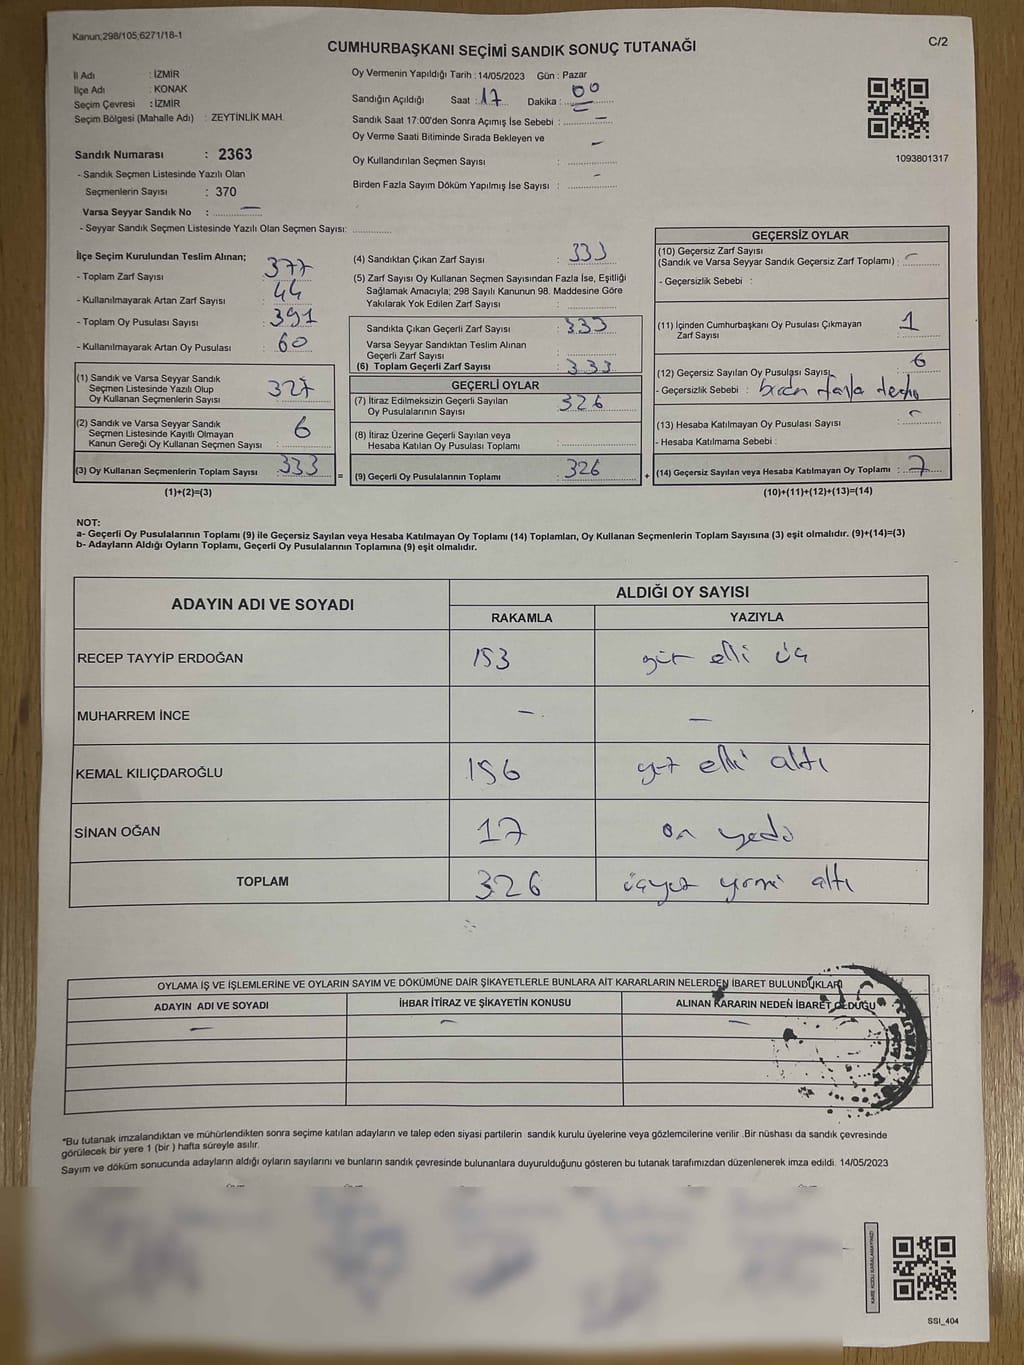 Kanun;298/105;6271/18-1
C/2
CUMHURBAŞKANI SEÇİMİ SANDIK SONUÇ TUTANAĞI
İl Adı : İZMİR
İlçe Adı : KONAK
Seçim Çevresi : İZMİR
Seçim Bölgesi (Mahalle Adı) : ZEYTİNLİK MAH.
Sandık Numarası : 2363
- Sandık Seçmen Listesinde Yazılı Olan
Seçmenlerin Sayısı : 370
Varsa Seyyar Sandık No : —
- Seyyar Sandık Seçmen Listesinde Yazılı Olan Seçmen Sayısı: ............
Oy Vermenin Yapıldığı Tarih : 14/05/2023 Gün : Pazar
Sandığın Açıldığı Saat : 17 Dakika : 00
Sandık Saat 17:00'den Sonra Açımış İse Sebebi : —
Oy Verme Saati Bitiminde Sırada Bekleyen ve —
Oy Kullandırılan Seçmen Sayısı : ............
Birden Fazla Sayım Döküm Yapılmış İse Sayısı : -
1093801317
İlçe Seçim Kurulundan Teslim Alınan;
- Toplam Zarf Sayısı : 377
- Kullanılmayarak Artan Zarf Sayısı : 44
- Toplam Oy Pusulası Sayısı : 391
- Kullanılmayarak Artan Oy Pusulası : 60
(1) Sandık ve Varsa Seyyar Sandık
Seçmen Listesinde Yazılı Olup
Oy Kullanan Seçmenlerin Sayısı : 327
(2) Sandık ve Varsa Seyyar Sandık
Seçmen Listesinde Kayıtlı Olmayan
Kanun Gereği Oy Kullanan Seçmen Sayısı : 6
(3) Oy Kullanan Seçmenlerin Toplam Sayısı : 333
(1)+(2)=(3)
(4) Sandıktan Çıkan Zarf Sayısı : 333
(5) Zarf Sayısı Oy Kullanan Seçmen Sayısından Fazla İse, Eşitliği
Sağlamak Amacıyla; 298 Sayılı Kanunun 98. Maddesine Göre
Yakılarak Yok Edilen Zarf Sayısı : ............
Sandıkta Çıkan Geçerli Zarf Sayısı : 333
Varsa Seyyar Sandıktan Teslim Alınan
Geçerli Zarf Sayısı : ............
(6) Toplam Geçerli Zarf Sayısı : 333
GEÇERLİ OYLAR
(7) İtiraz Edilmeksizin Geçerli Sayılan
Oy Pusulalarının Sayısı : 326
(8) İtiraz Üzerine Geçerli Sayılan veya
Hesaba Katılan Oy Pusulası Toplamı : ............
= (9) Geçerli Oy Pusulalarının Toplamı : 326
GEÇERSİZ OYLAR
(10) Geçersiz Zarf Sayısı
(Sandık ve Varsa Seyyar Sandık Geçersiz Zarf Toplamı) : -
- Geçersizlik Sebebi :
(11) İçinden Cumhurbaşkanı Oy Pusulası Çıkmayan
Zarf Sayısı : 1
(12) Geçersiz Sayılan Oy Pusulası Sayısı : 6
- Geçersizlik Sebebi : birden fazla tercih
(13) Hesaba Katılmayan Oy Pusulası Sayısı : -
- Hesaba Katılmama Sebebi :
+ (14) Geçersiz Sayılan veya Hesaba Katılmayan Oy Toplamı : 7
(10)+(11)+(12)+(13)=(14)
NOT:
a- Geçerli Oy Pusulalarının Toplamı (9) ile Geçersiz Sayılan veya Hesaba Katılmayan Oy Toplamı (14) Toplamları, Oy Kullanan Seçmenlerin Toplam Sayısına (3) eşit olmalıdır. (9)+(14)=(3)
b- Adayların Aldığı Oyların Toplamı, Geçerli Oy Pusulalarının Toplamına (9) eşit olmalıdır.
ADAYIN ADI VE SOYADI
ALDIĞI OY SAYISI
RAKAMLA YAZIYLA
RECEP TAYYİP ERDOĞAN 153 yüz elli üç
MUHARREM İNCE - —
KEMAL KILIÇDAROĞLU 156 yüz elli altı
SİNAN OĞAN 17 on yedi
TOPLAM 326 üçyüz yirmi altı
OYLAMA İŞ VE İŞLEMLERİNE VE OYLARIN SAYIM VE DÖKÜMÜNE DAİR ŞİKAYETLERLE BUNLARA AİT KARARLARIN NELERDEN İBARET BULUNDUKLARI
ADAYIN ADI VE SOYADI İHBAR İTİRAZ VE ŞİKAYETİN KONUSU ALINAN KARARIN NEDEN İBARET OLDUĞU
— — —
*Bu tutanak imzalandıktan ve mühürlendikten sonra seçime katılan adayların ve talep eden siyasi partilerin sandık kurulu üyelerine veya gözlemcilerine verilir .Bir nüshası da sandık çevresinde
görülecek bir yere 1 (bir ) hafta süreyle asılır.
Sayım ve döküm sonucunda adayların aldığı oyların sayılarını ve bunların sandık çevresinde bulunanlara duyurulduğunu gösteren bu tutanak tarafımızdan düzenlenerek imza edildi. 14/05/2023
KARE KODU KARALAMAYINIZ!
SSI_404